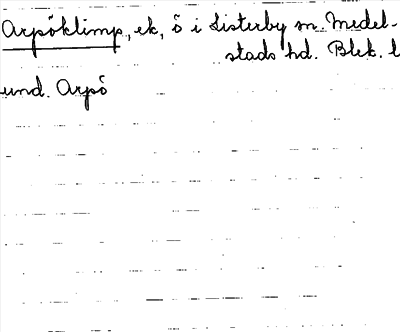 Arpöklimp, ek, ö i Listerby sn. Medel-
stads hd. Blek. l
und. Arpö